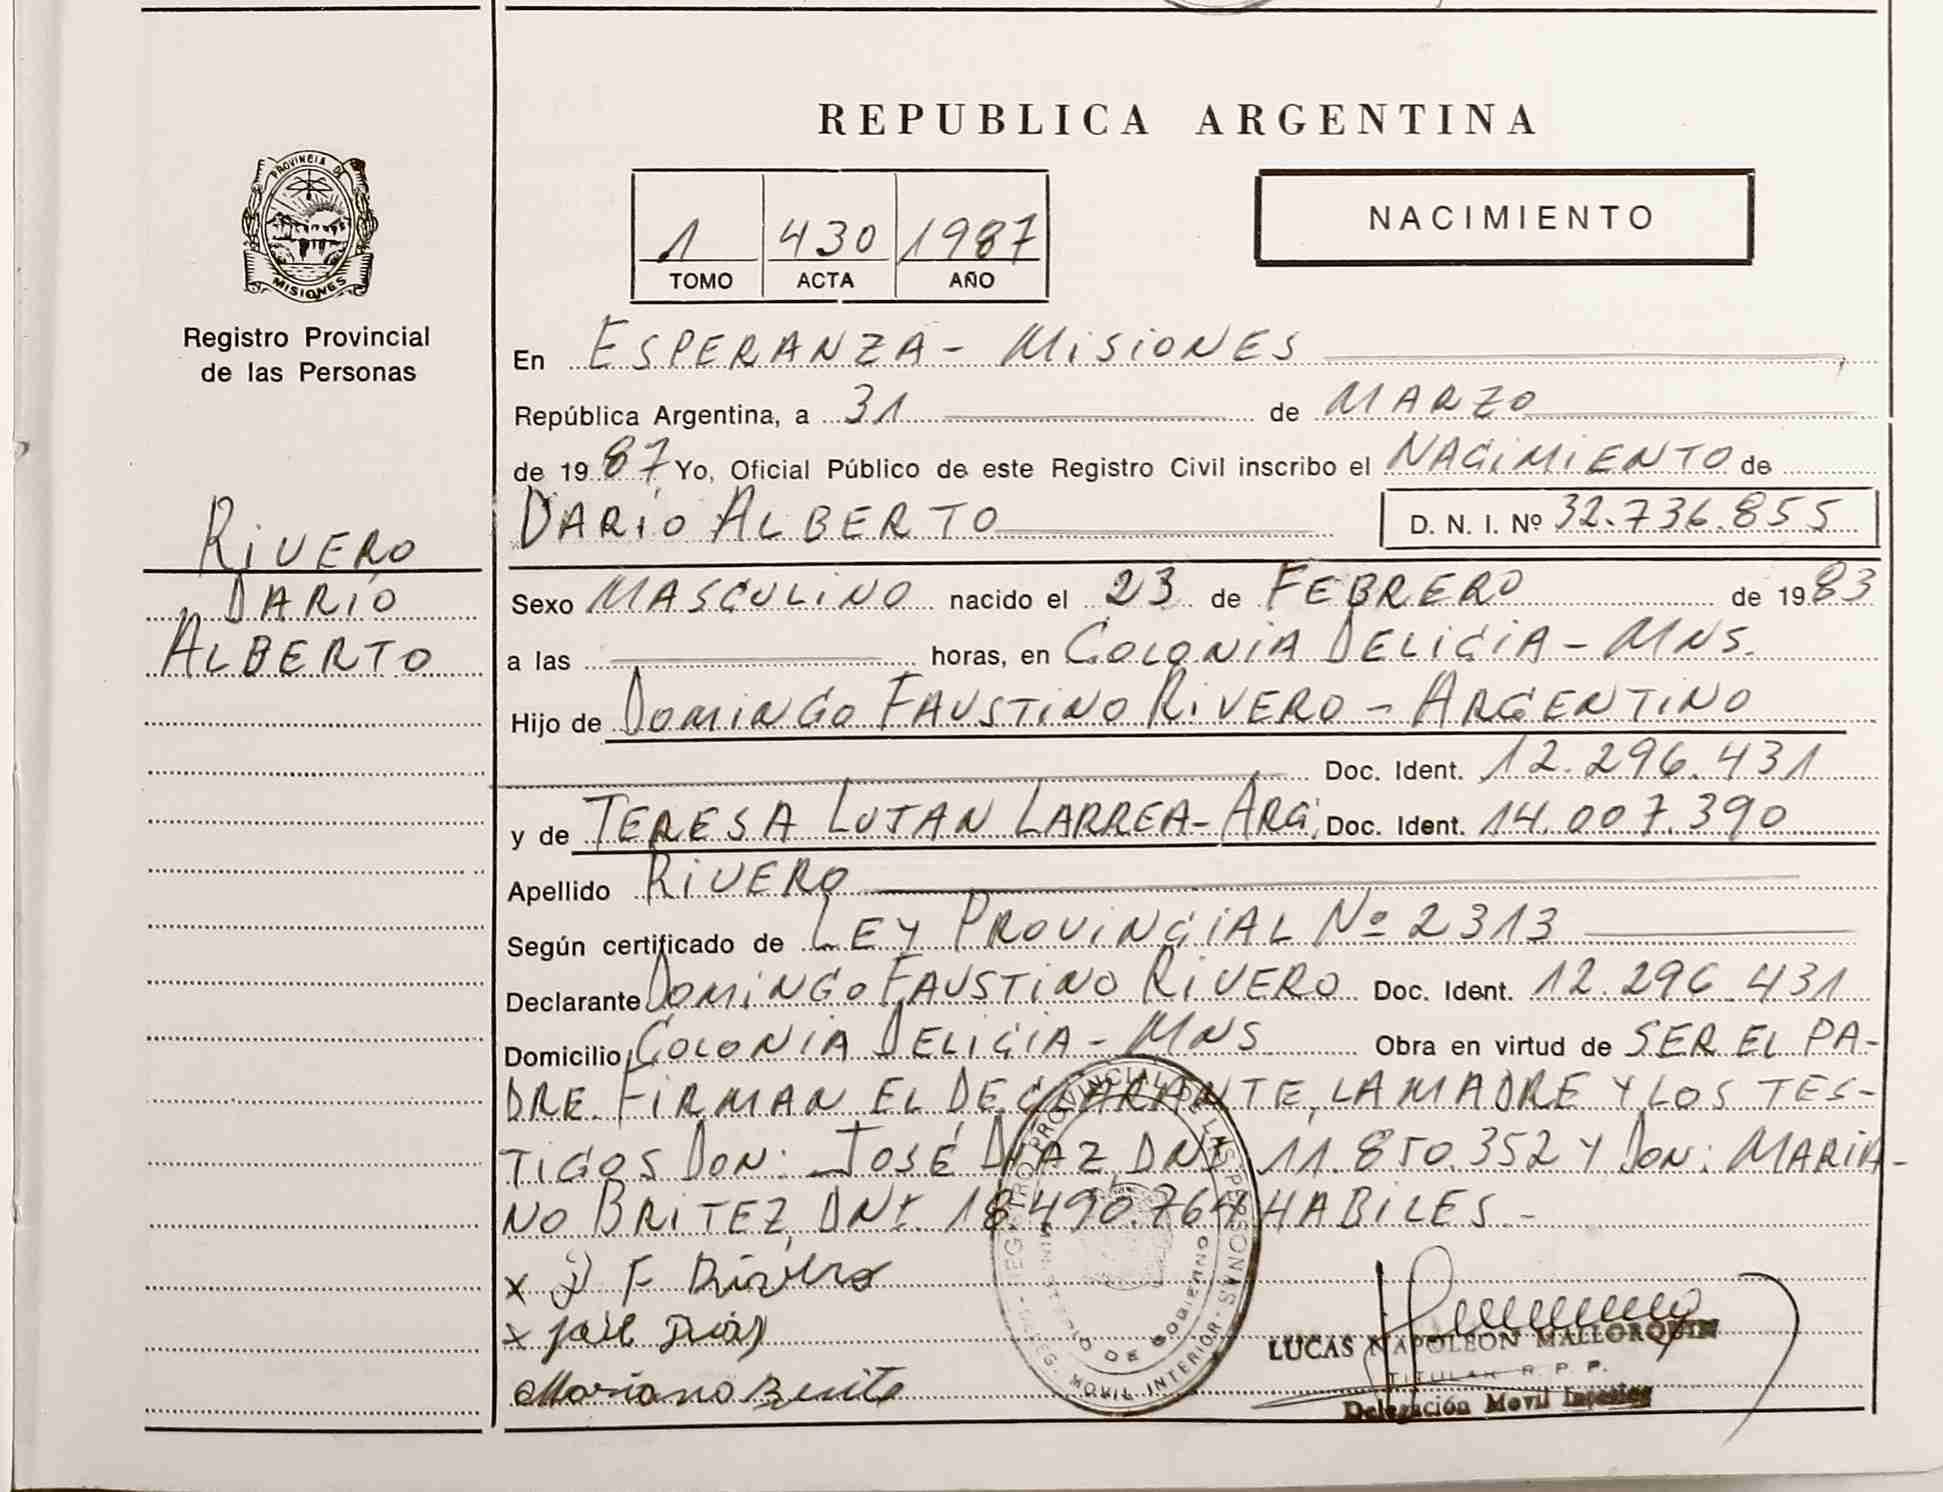 REPUBLICA ARGENTINA
PROVINCIA DE
MISIONES
Registro Provincial
de las Personas
1 430 1987
TOMO ACTA AÑO
NACIMIENTO
En ESPERANZA - MISIONES
República Argentina, a 31 de MARZO
de 1987 Yo, Oficial Público de este Registro Civil inscribo el NACIMIENTO de
DARIO ALBERTO D. N. I. Nº 32.736.855
RIVERO
DARIO
ALBERTO
Sexo MASCULINO nacido el 23 de FEBRERO de 1983
a las horas, en COLONIA DELICIA - MNS.
Hijo de DOMINGO FAUSTINO RIVERO - ARGENTINO
Doc. Ident. 12.296.431
y de TERESA LUJAN LARREA - ARG. Doc. Ident. 14.007.390
Apellido RIVERO
Según certificado de LEY PROVINCIAL Nº 2313
Declarante DOMINGO FAUSTINO RIVERO Doc. Ident. 12.296.431
Domicilio COLONIA DELICIA - MNS Obra en virtud de SER EL PA-
DRE. FIRMAN EL DECLARANTE, LA MADRE Y LOS TES-
TIGOS DON: JOSÉ DIAZ DNI 11.850.352 Y DON: MARIA-
NO BRITEZ, DNI. 18.490.764 HABILES.-
x D F Rivero
x José Díaz
Mariano Britez
REGISTRO PROVINCIAL DE LAS PERSONAS
MINISTERIO DE GOBIERNO
DELEG. MOVIL INTERIOR
LUCAS NAPOLEON MALLORQUIN
TITULAR R. P. P.
Delegación Movil Interior